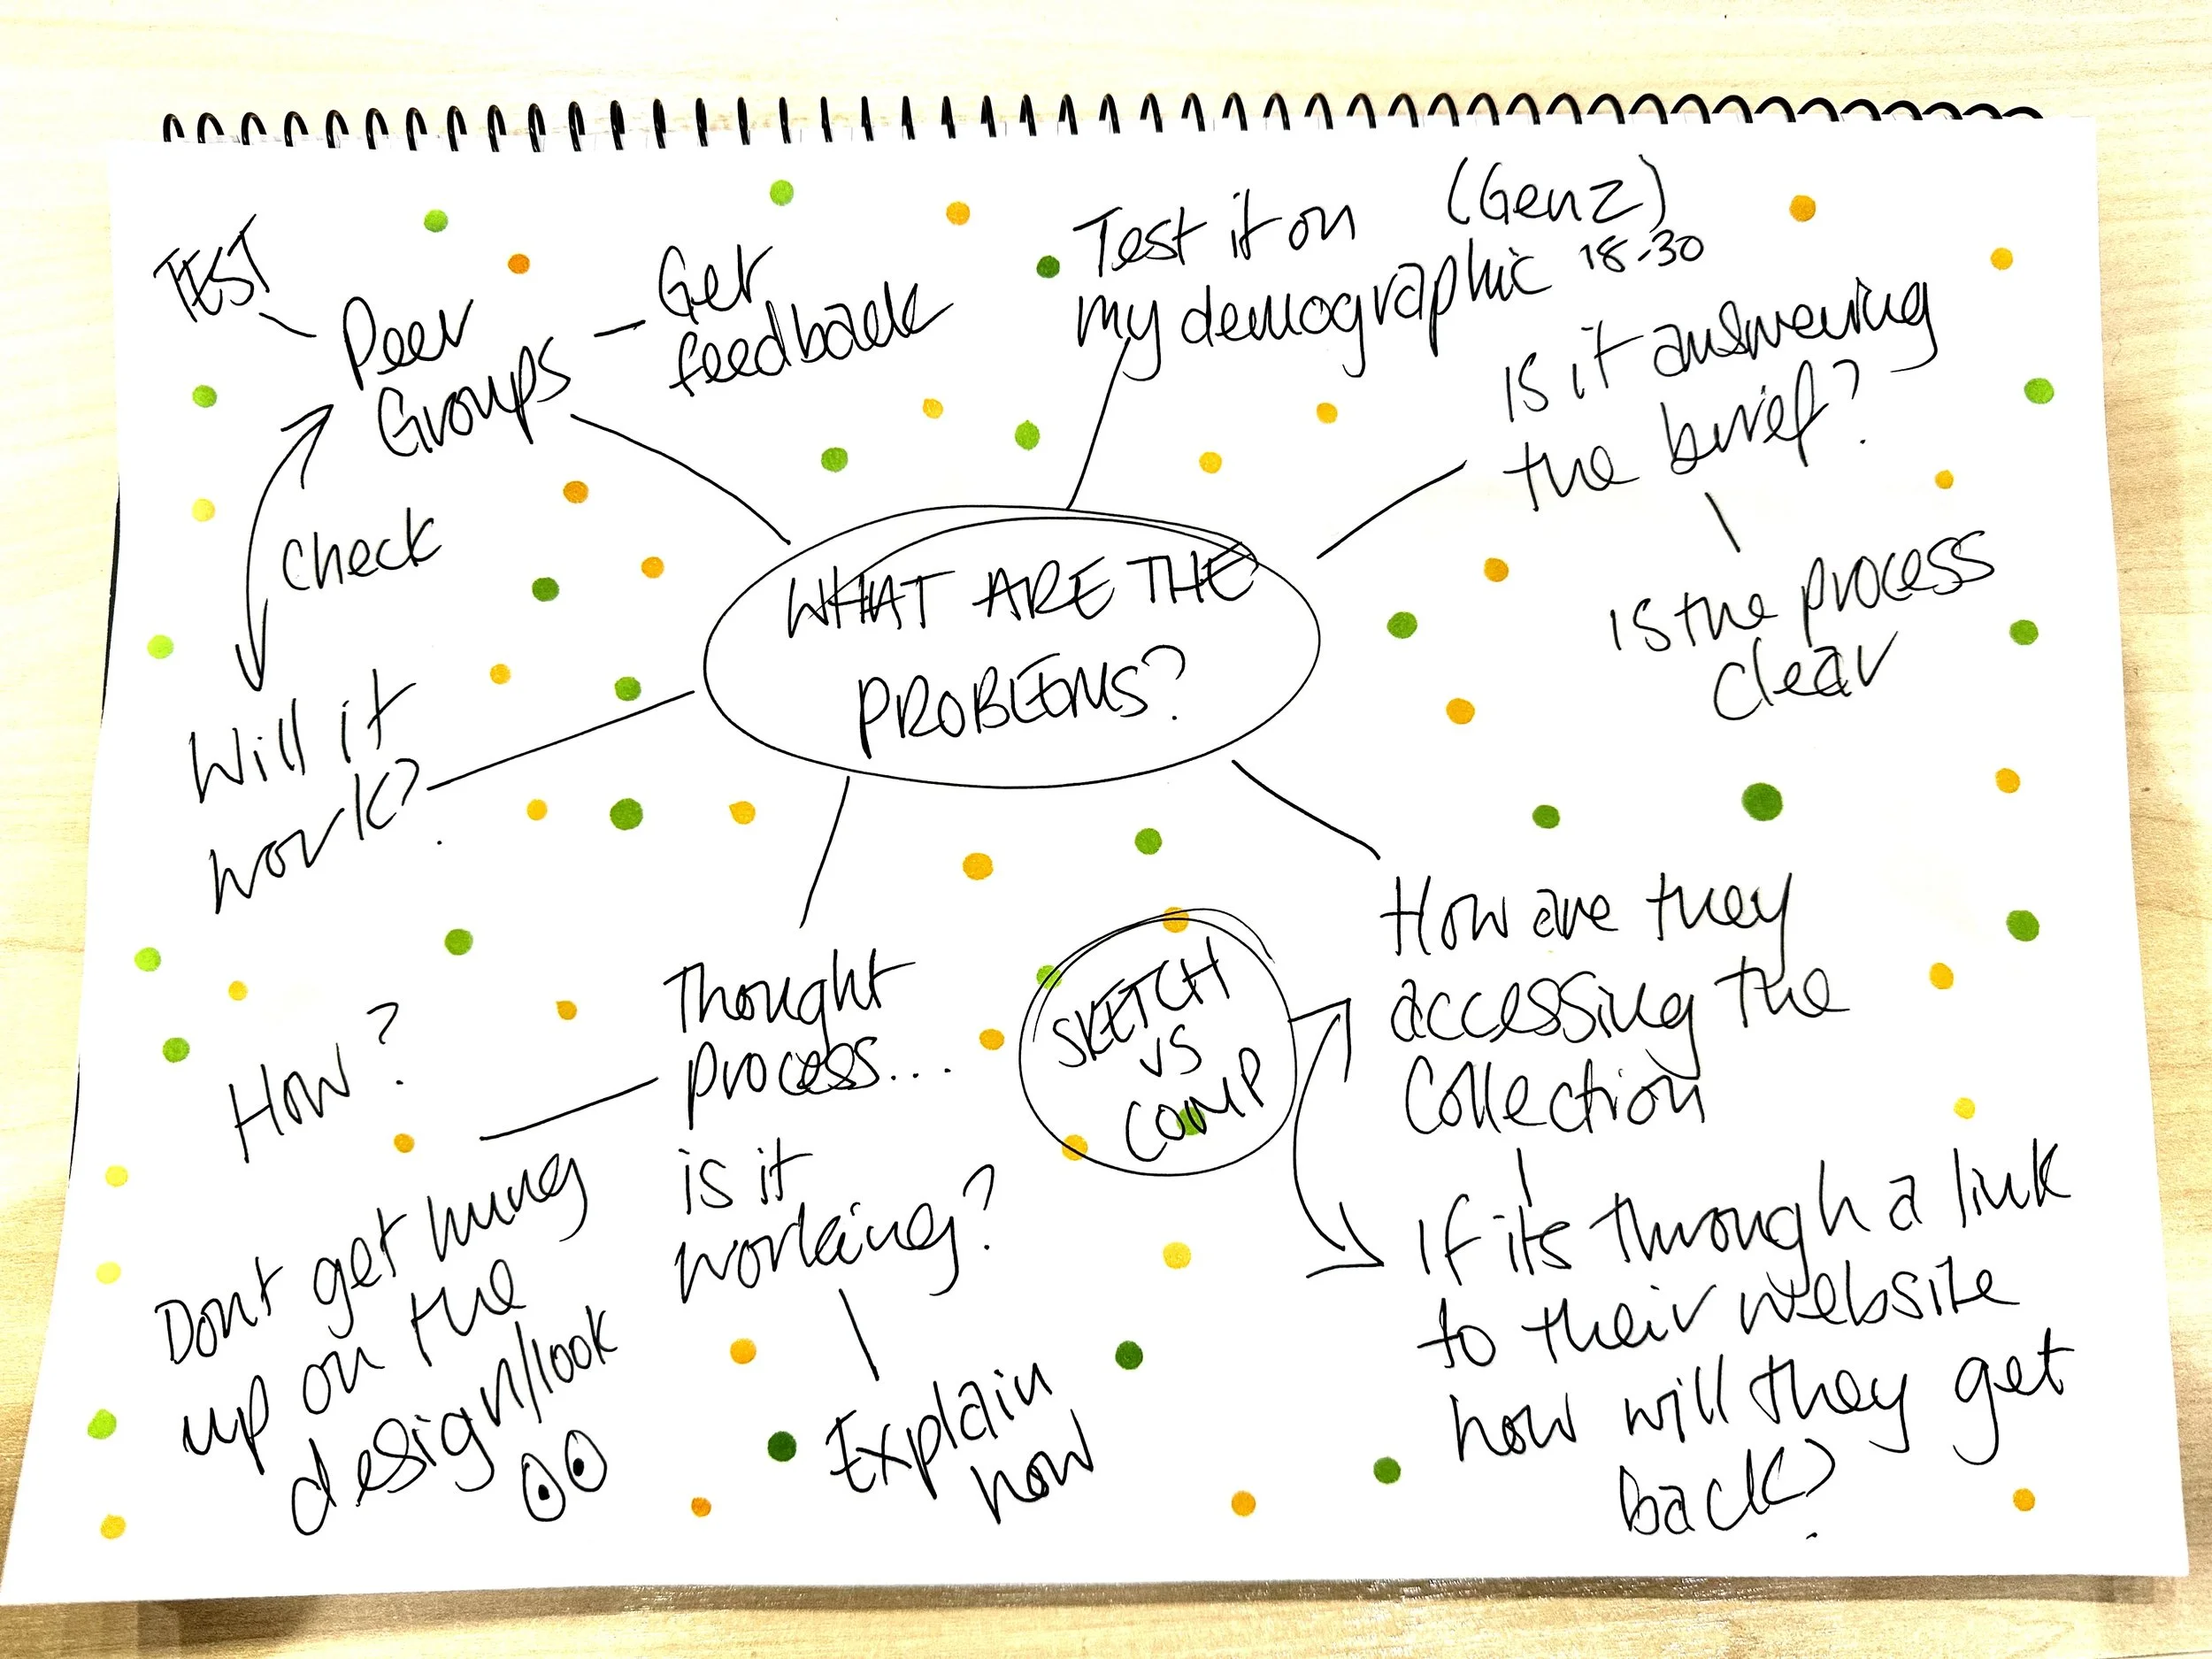 WHAT ARE THE
PROBLEMS?
TEST
Peer
Groups
Get
feedback
Test it on
my demographic
(Genz)
18-30
is it answering
the brief?
is the process
clear
check
Will it
work?
Thought
process...
is it
working?
Explain
how
How?
Dont get hung
up on the
design/look
SKETCH
VS
COMP
How are they
accessing the
Collection
If its through a link
to their website
how will they get
back?